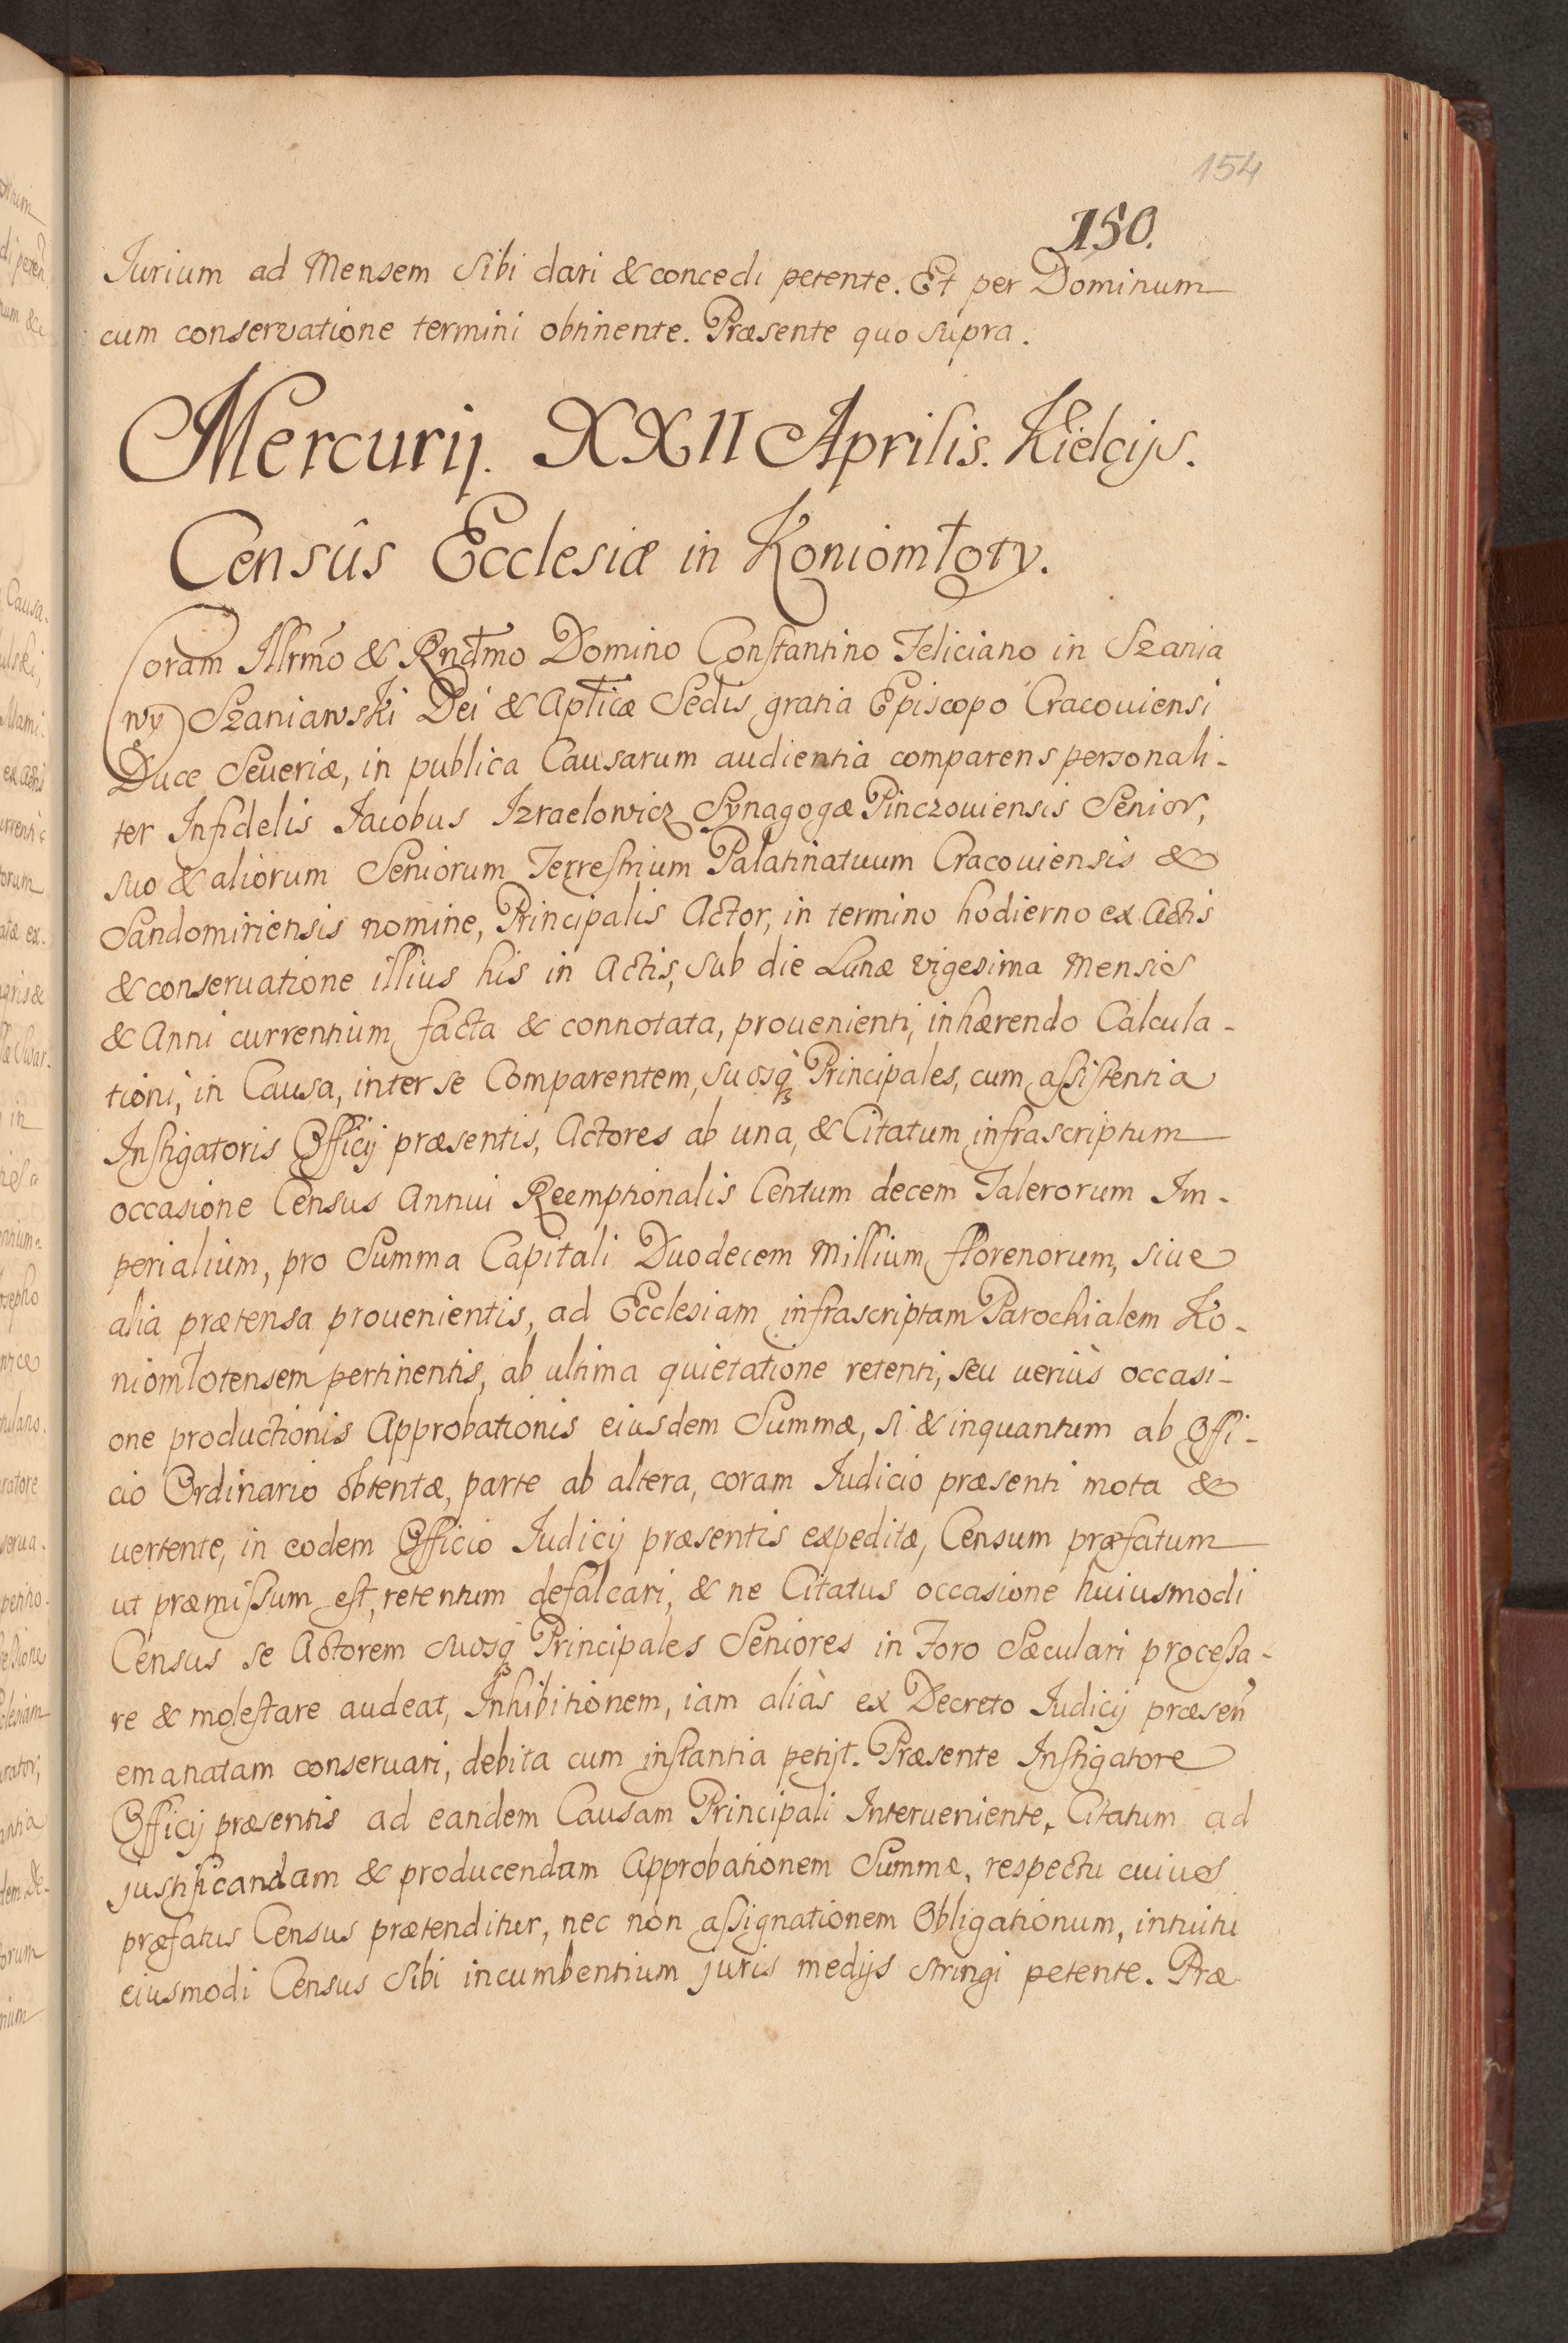 154
150.
Jurium ad Mensem sibi dari & concedi petente. Et per Dominum
cum conservatione termini obtinente. Præsente quo supra.
Mercurij. XXII Aprilis. Kielcijs.
Censûs Ecclesiæ in Koniomłoty.
Coram Illrmo & Rndmo Domino Constantino Feliciano in Szania
wy Szaniawski Dei & Aplicæ Sedis gratia Episcopo Cracouiensi
Duce Seueriæ, in publica Causarum audientia comparens personali-
ter Infidelis Jacobus Izraelowicz Synagogæ Pinczouiensis Senior,
suo & aliorum Seniorum Terrestrium Palatinatuum Cracouiensis &
Sandomiriensis nomine, Principalis Actor, in termino hodierno ex Actis
& conseruatione illius his in Actis, sub die Lunæ vigesima Mensis
& Anni currentium facta & connotata, prouenienti, inhærendo Calcula-
tioni, in Causa, inter se Comparentem, suosq Principales, cum assistentia
Instigatoris Officij præsentis, Actores ab una, & Citatum infrascriptum
occasione Census Annui Reemptionalis Centum decem Talerorum Im-
perialium, pro Summa Capitali Duodecem Millium florenorum, siue
alia prætensa prouenientis, ad Ecclesiam infrascriptam Parochialem Ko-
niomłotensem pertinentis, ab ultima quietatione retenti, seu veriùs occasi-
one productionis Approbationis eiusdem Summæ, si & inquantum ab Offi-
cio Ordinario obtentæ, parte ab altera, coram Iudicio præsenti mota &
uertente, in eodem Officio Iudicij præsentis expeditæ, Censum præfatum
ut præmissum est, retentum defalcari, & ne Citatus occasione huiusmodi
Census se Actorem suosq Principales Seniores in Foro Sæculari processa-
re & molestare audeat, Inhibitionem, iam aliàs ex Decreto Iudicij præsen
emanatam conseruari, debita cum instantia petijt. Præsente Instigatore
Officij præsentis ad eandem Causam Principali Interueniente, Citatum ad
justificandam & producendam Approbationem Summæ, respectu cuius
præfatus Census prætenditur, nec non assignationem Obligationum, intuitu
eiusmodi Census sibi incumbentium juris medijs stringi petente. Præ